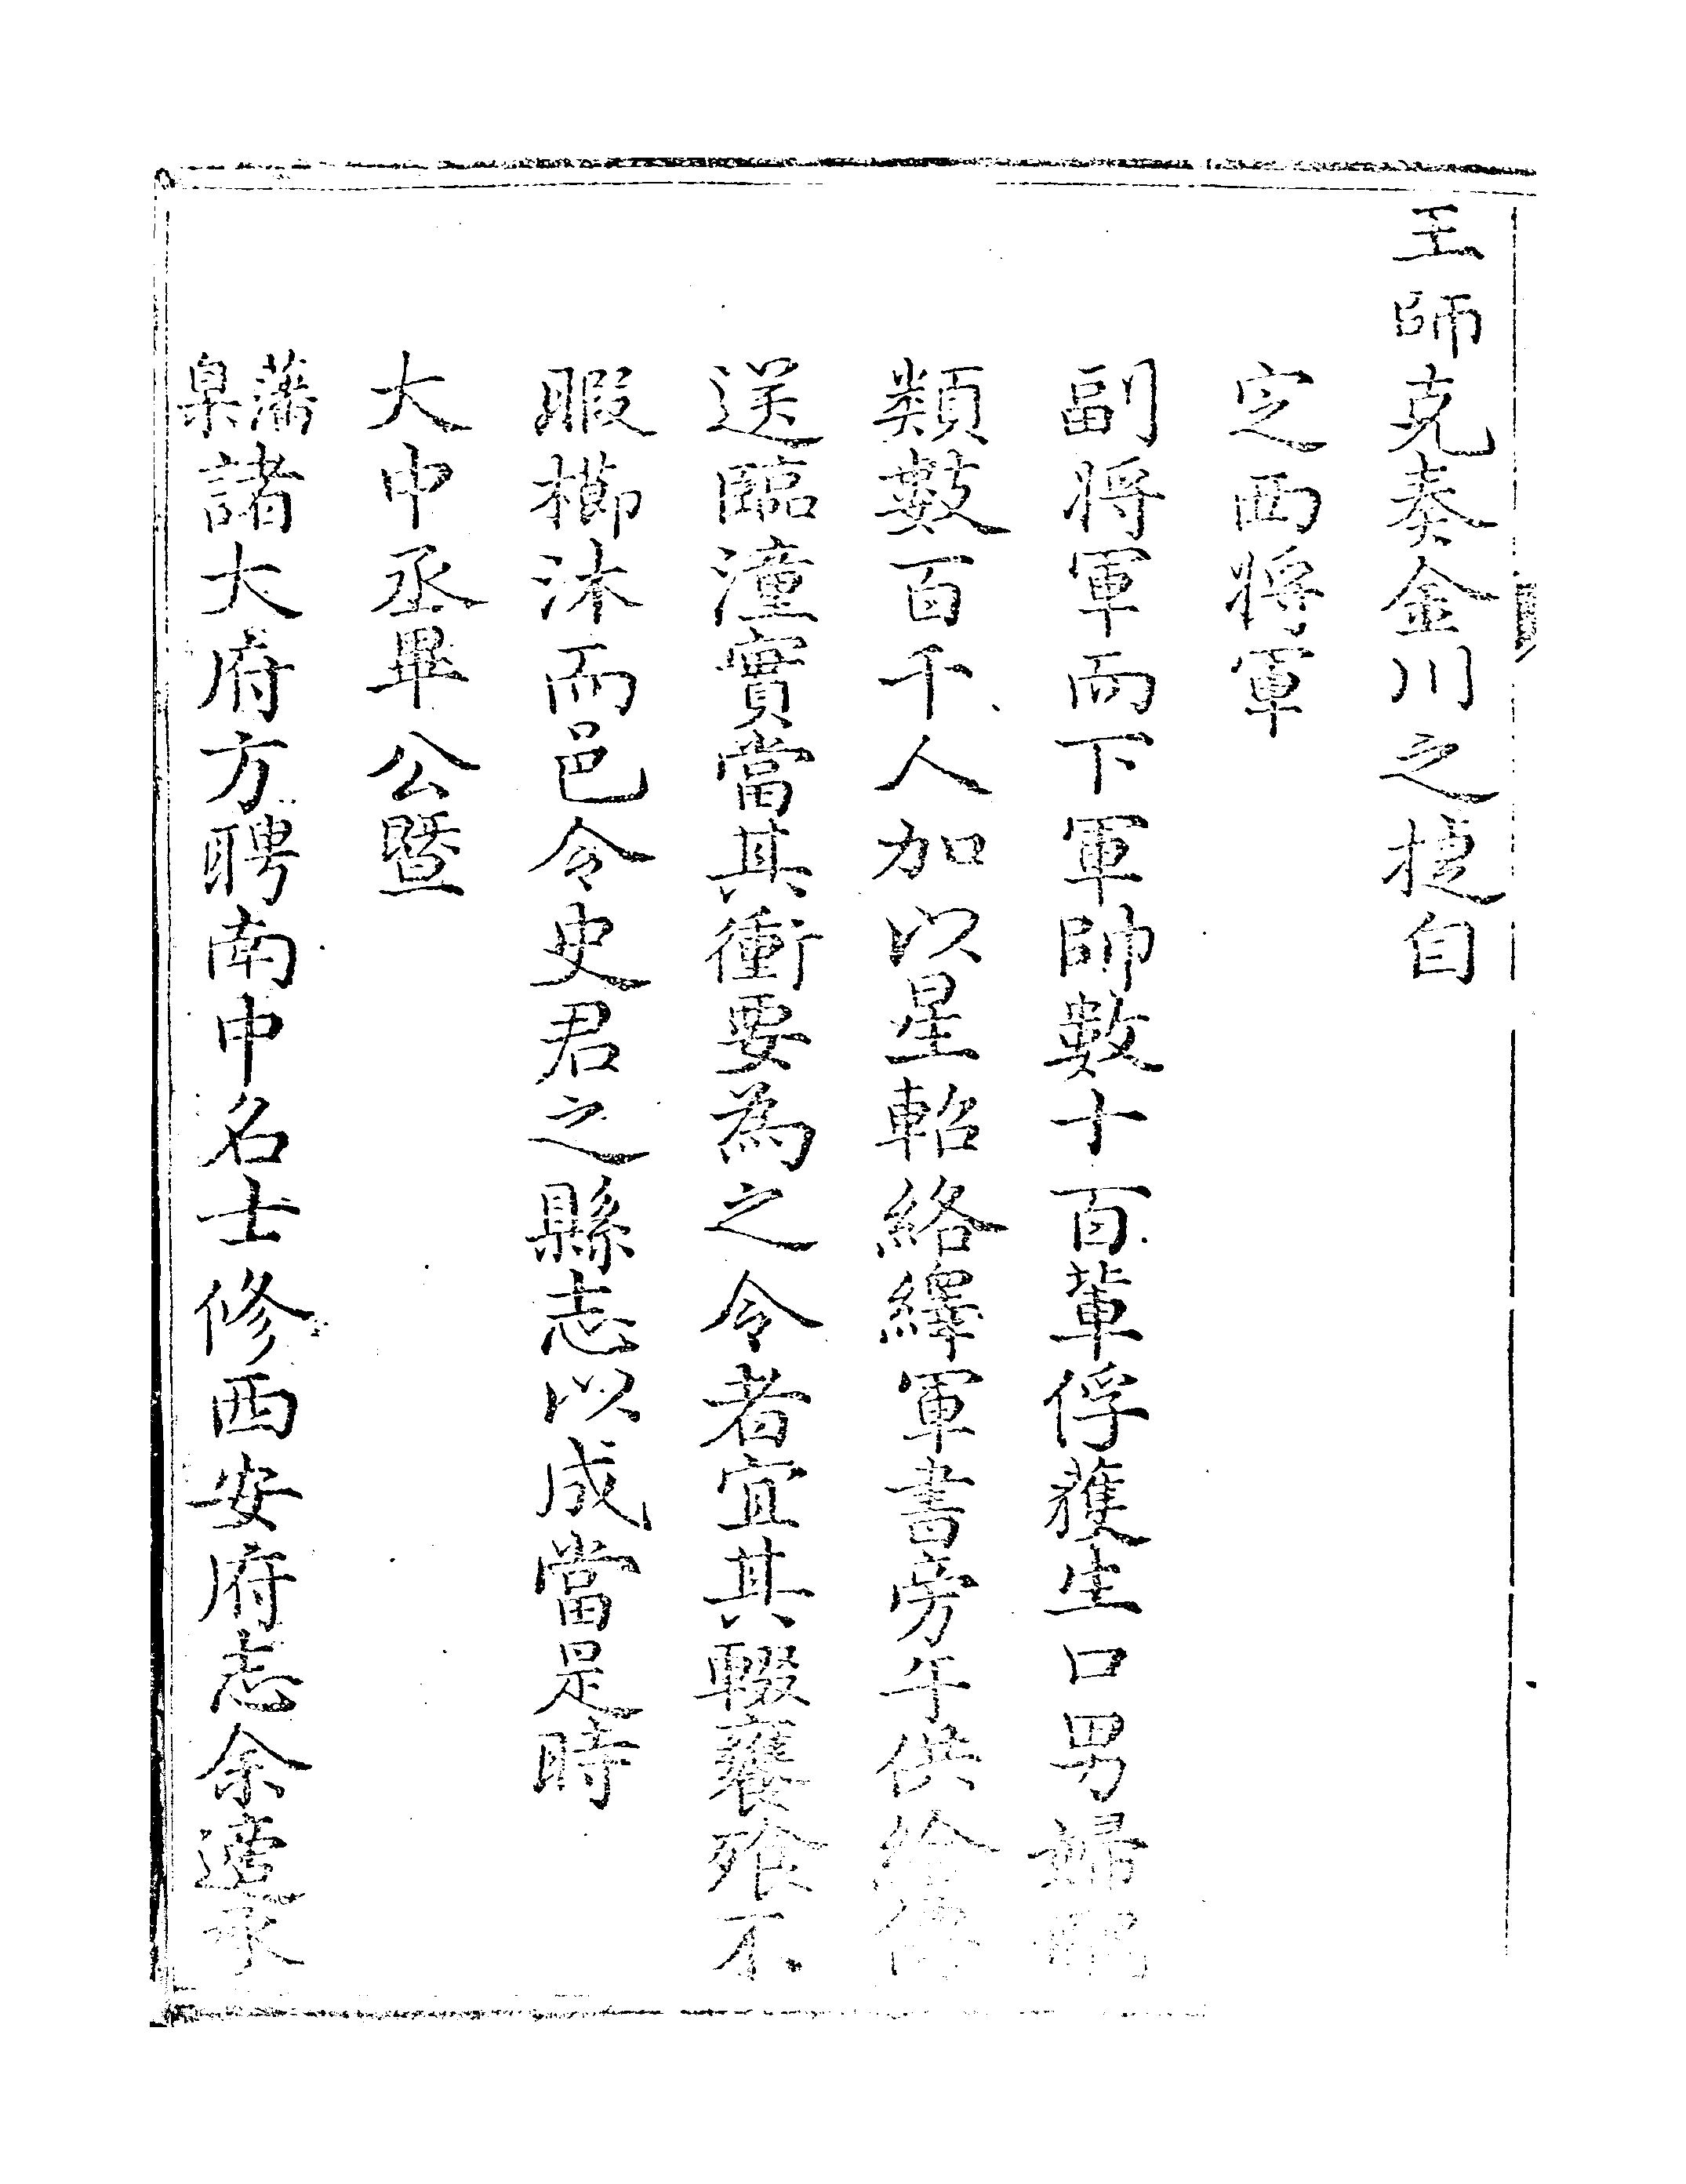 王師克奏金川之捷自
定西將軍
副將軍而下軍帥數十百輩俘獲生口男婦醜
類數百千人加以星軺絡繹軍書旁午供給儲
送臨潼實當其衝要為之令者宜其輟饔飧不
暇櫛沐而邑令史君之縣志以成當是時
大中丞畢公暨
藩臬諸大府方聘南中名士修西安府志余適承